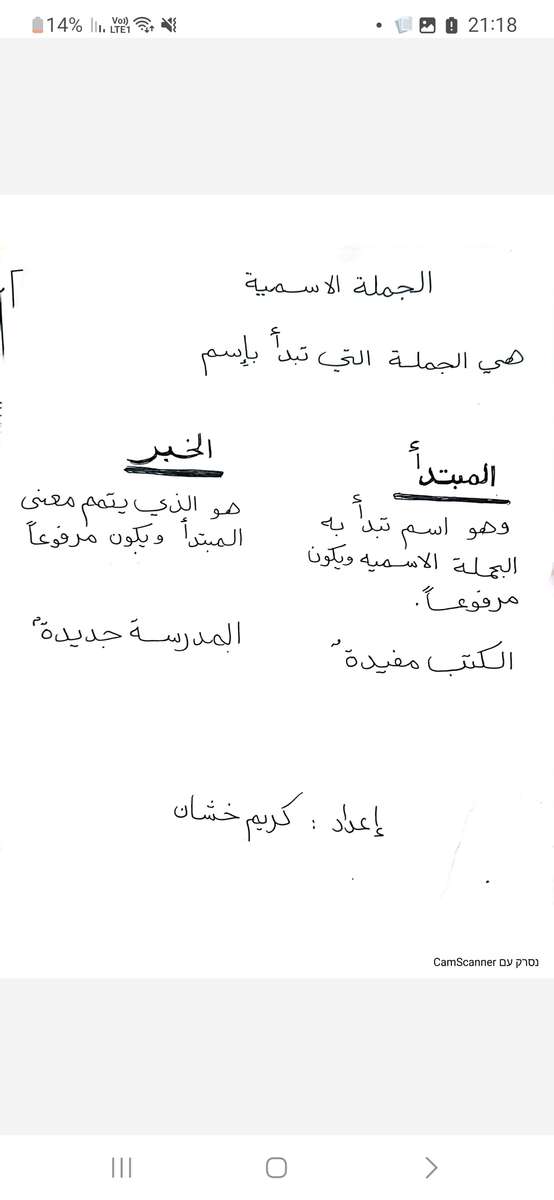 14% Vo) LTE1 21:18
الجملة الاسمية
هي الجملة التي تبدأ بإسم
المبتدأ
وهو اسم تبدأ به
الجملة الاسميه ويكون
مرفوعاً.
الكتب مفيدةٌ
الخبر
هو الذي يتمم معنى
المبتدأ ويكون مرفوعاً
المدرسة جديدةٌ
إعداد : كريم خشان
נסרק עם CamScanner